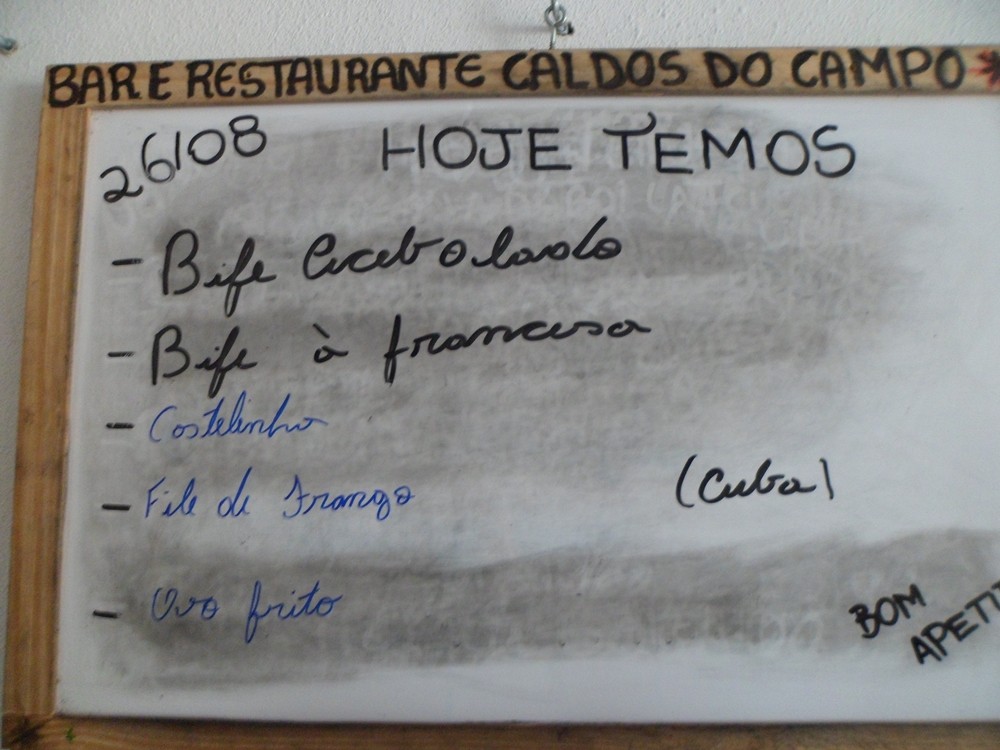 BAR E RESTAURANTE CALDOS DO CAMPO
26/08 HOJE TEMOS
- Bife Acebolado
- Bife à francesa
- Costelinha
- File de Frango (Cuba)
- Ovo frito
BOM
APETI